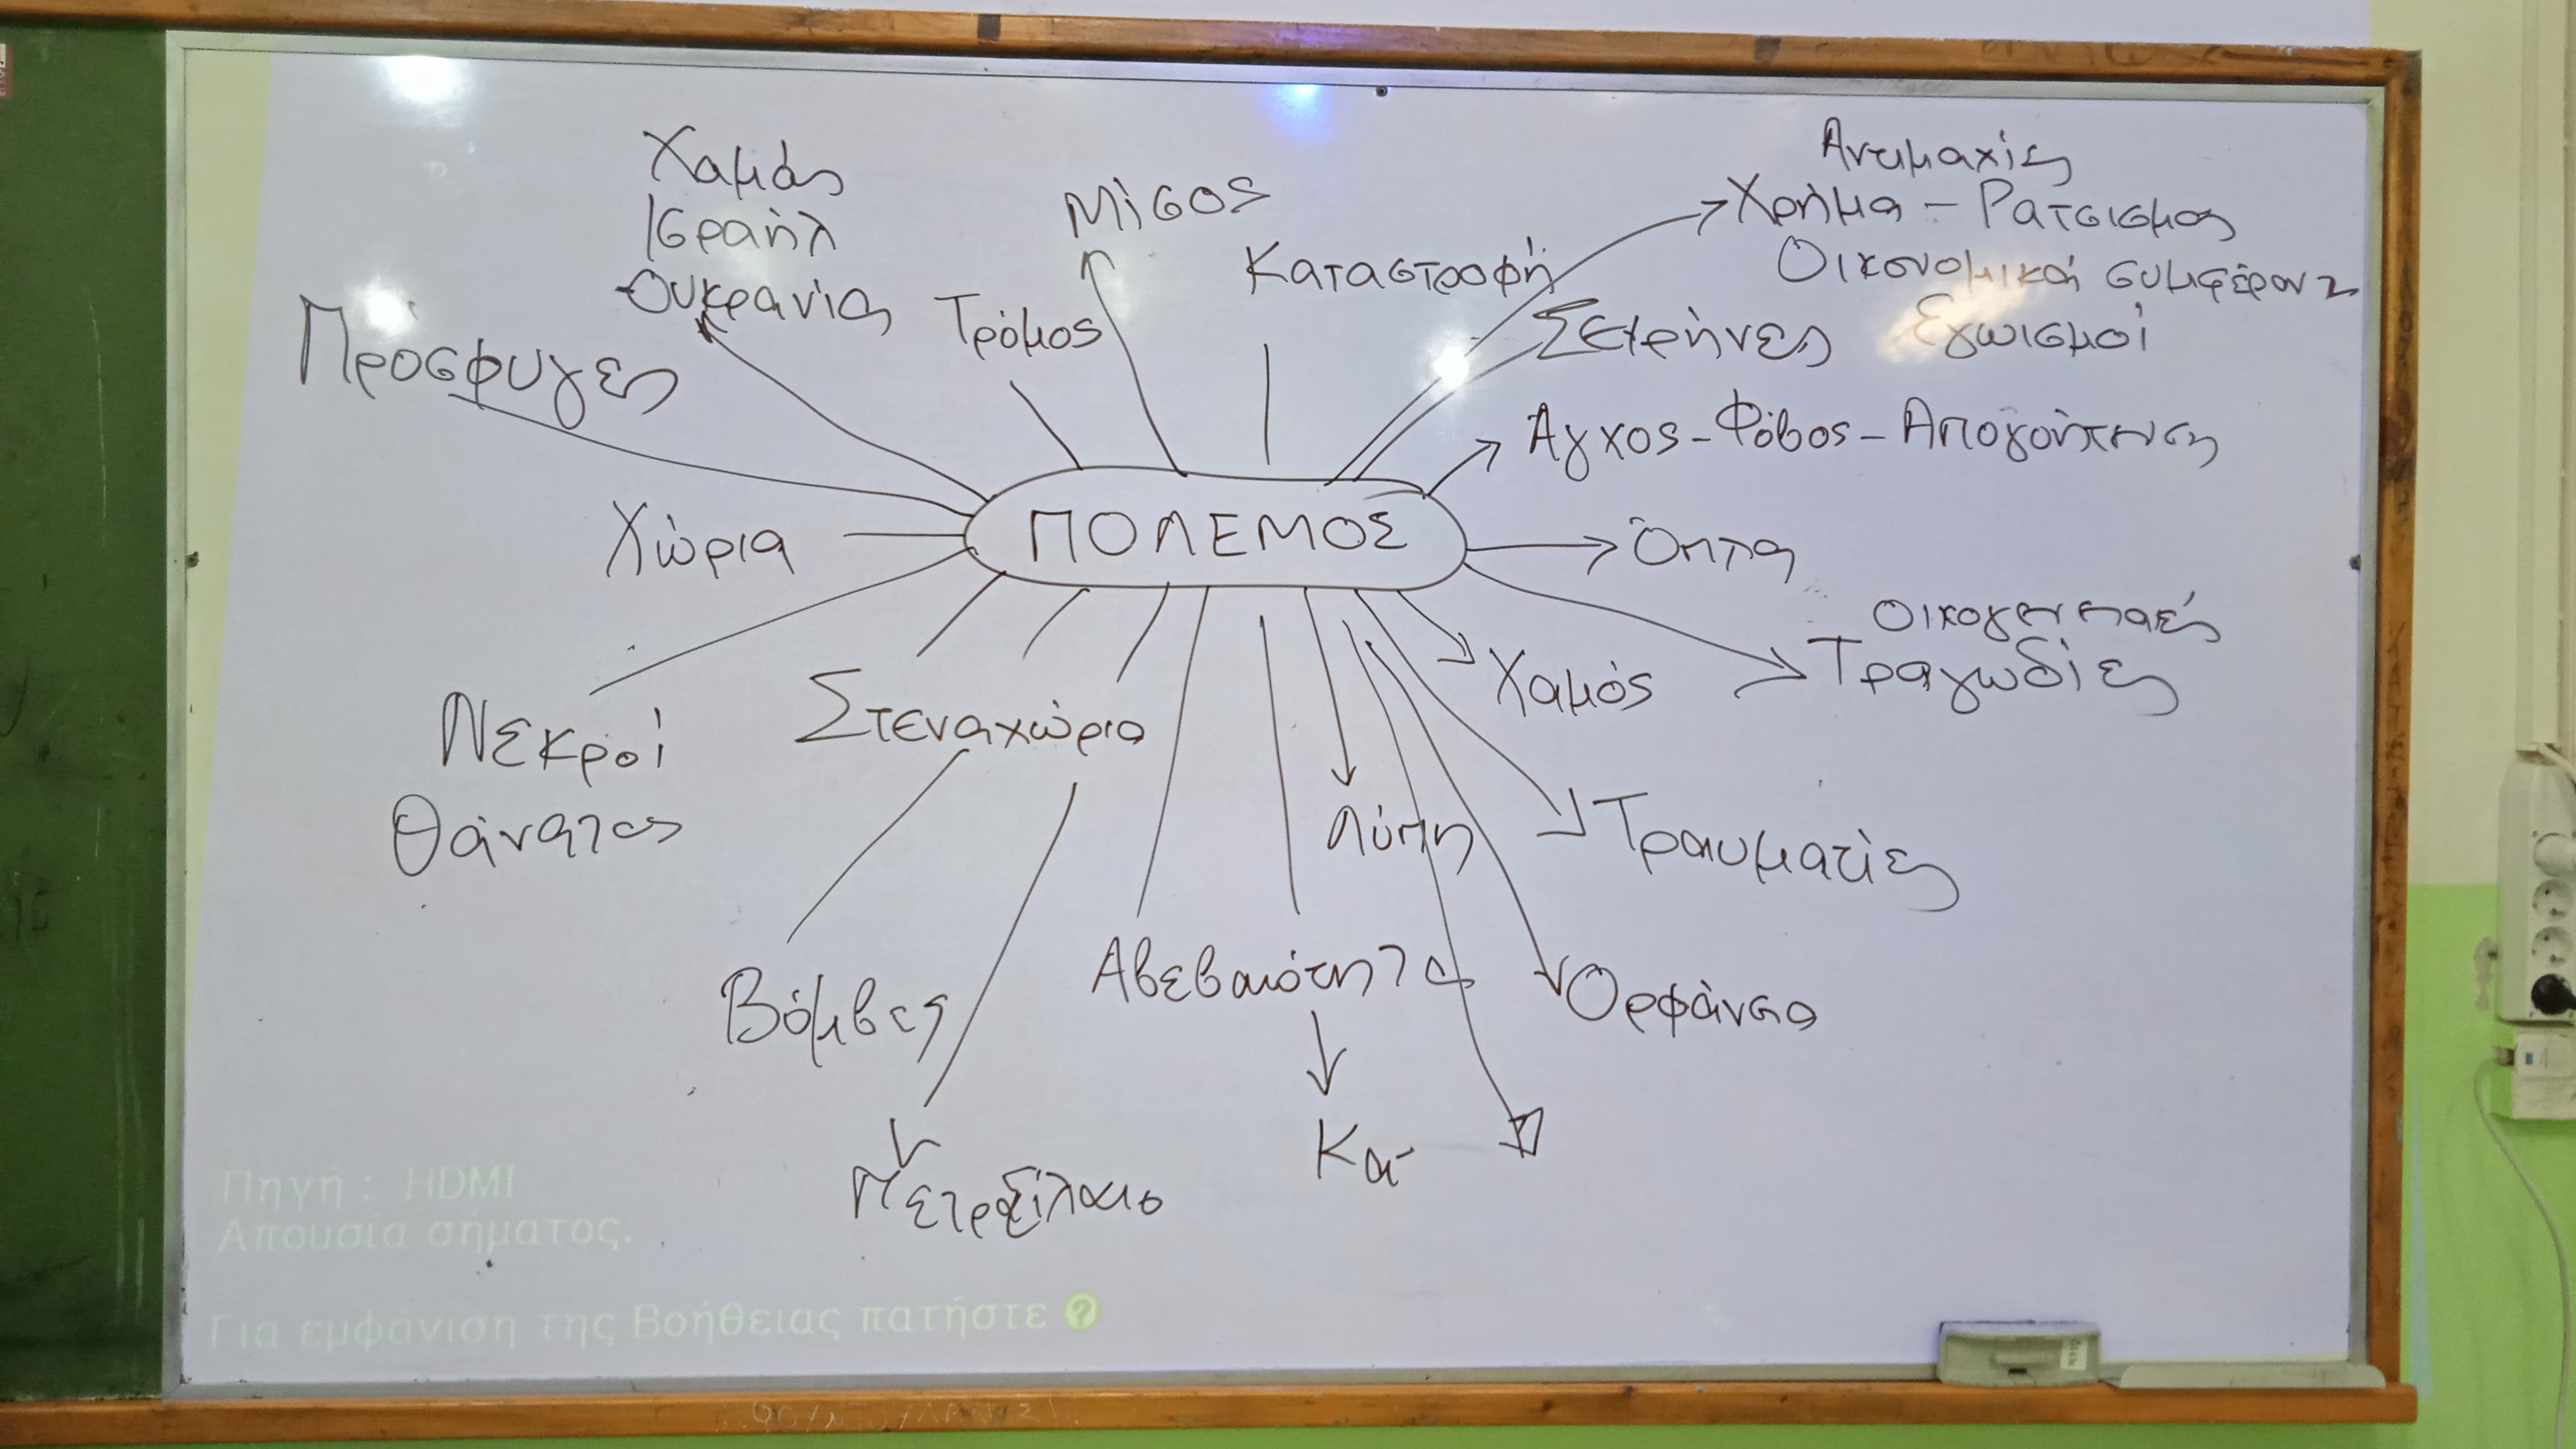 Χαμάς
Ισραήλ
Ουκρανία
Πρόσφυγες
Τρόμος
Μίσος
Καταστροφή
Αντιμαχίες
Χρήμα - Ρατσισμος
Οικονομικά συμφέροντα
Σειρήνες Εγωισμοί
Άγχος - Φόβος - Απογοήτευση
ΠΟΛΕΜΟΣ
Χώρια
Όπλα
Οικογενειακές
Τραγωδίες
Χαμός
Νεκροί
Θάνατος
Στεναχώρια
Λύπη
Τραυματίες
Βόμβες
Αβεβαιότητα
Ορφάνια
Πετρέλαιο
Κα-
Πηγή : HDMI
Απουσία σήματος.
Για εμφάνιση της Βοήθειας πατήστε ?